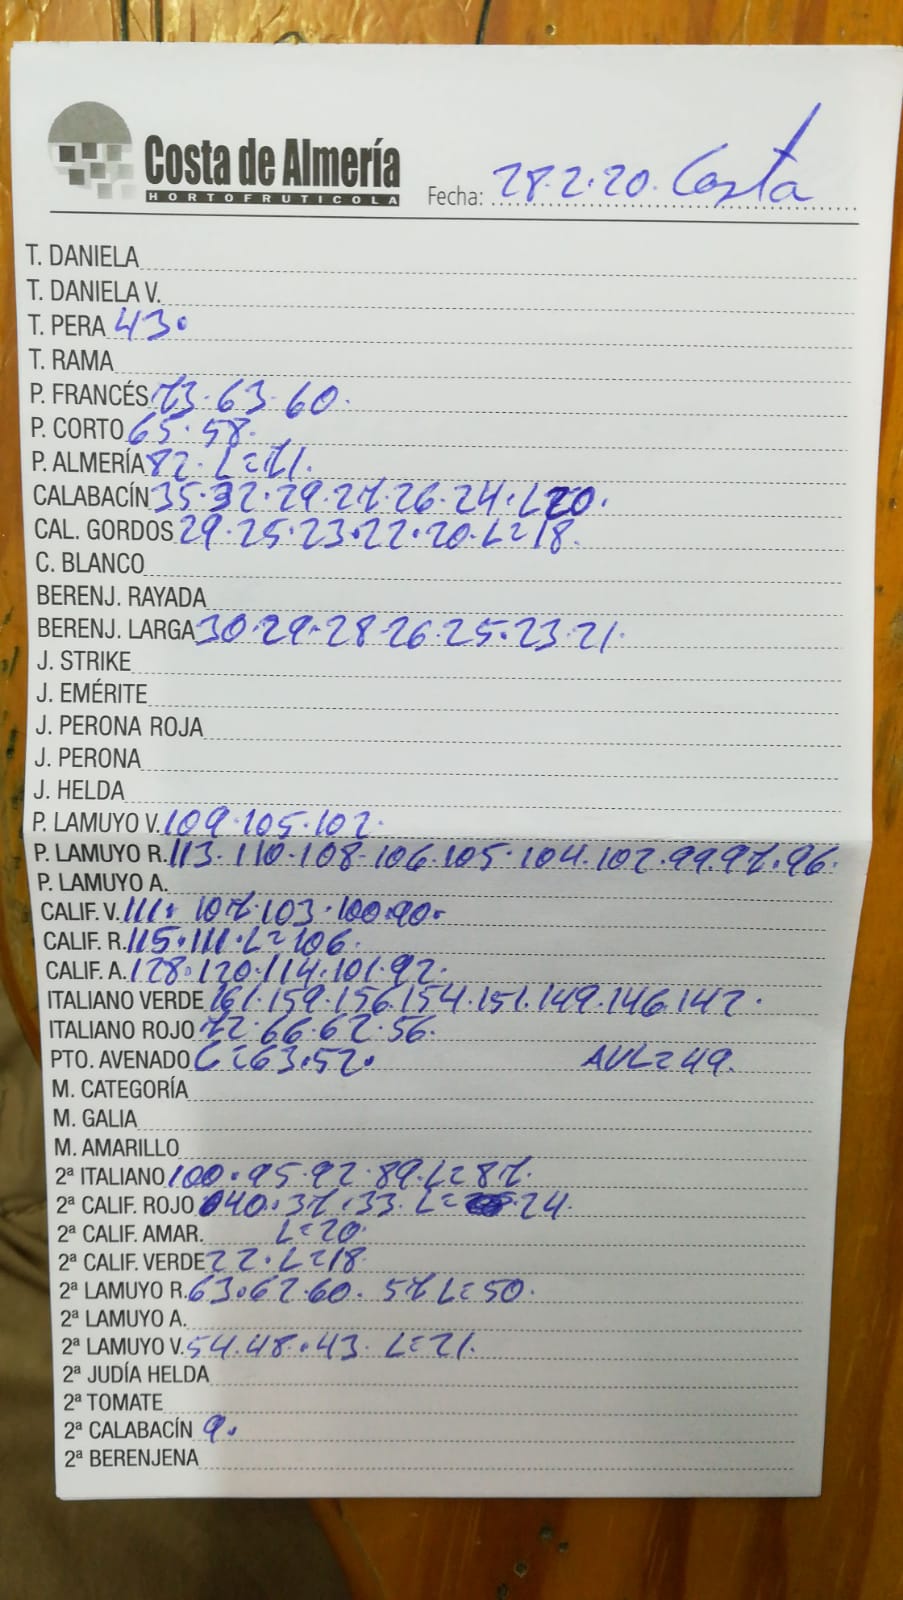 Costa de Almería
HORTOFRUTICOLA
Fecha: 28.2.20. Costa
T. DANIELA
T. DANIELA V.
T. PERA 43.
T. RAMA
P. FRANCÉS 73.63.60.
P. CORTO 65.58.
P. ALMERÍA 82. L=71.
CALABACÍN 35.32.29.27.26.24.L20.
CAL. GORDOS 29.25.23.22.20.L=18.
C. BLANCO
BERENJ. RAYADA
BERENJ. LARGA 30.29.28.26.25.23.21.
J. STRIKE
J. EMÉRITE
J. PERONA ROJA
J. PERONA
J. HELDA
P. LAMUYO V. 109.105.102.
P. LAMUYO R. 113.110.108.106.105.104.102.99.97.96.
P. LAMUYO A.
CALIF. V. 111.107.103.100.90.
CALIF. R. 115.111.L=106.
CALIF. A. 128.120.114.101.92.
ITALIANO VERDE 161.159.156.154.151.149.146.142.
ITALIANO ROJO 72.66.62.56.
PTO. AVENADO C=63.52. AVL=49.
M. CATEGORÍA
M. GALIA
M. AMARILLO
2ª ITALIANO 100.95.92.89.L=87.
2ª CALIF. ROJO 40.37.33. L=24.
2ª CALIF. AMAR. L=20.
2ª CALIF. VERDE 22.L=18
2ª LAMUYO R. 63.62.60. 57 L=50.
2ª LAMUYO A.
2ª LAMUYO V. 54.48.43. L=21.
2ª JUDÍA HELDA
2ª TOMATE
2ª CALABACÍN 9.
2ª BERENJENA